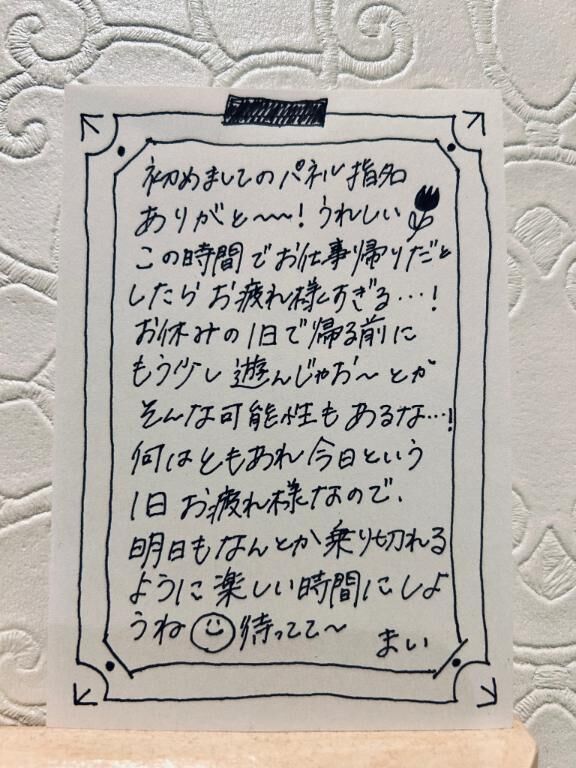 初めましてのパネル指名
ありがと〜〜！うれしい
この時間でお仕事帰りだと
したらお疲れ様すぎる…！
お休みの1日で帰る前に
もう少し遊んじゃお〜とか
そんな可能性もあるな…！
何はともあれ今日という
1日お疲れ様なので、
明日もなんとか乗り切れる
ように楽しい時間にしよ
うね 待ってて〜
まい